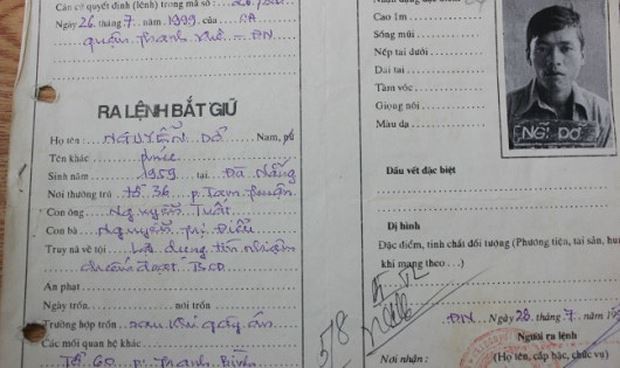 Căn cứ quyết định (lệnh) trong mã số :
Ngày 26 tháng 7 năm 1999 của CA
quận Thanh Khê - ĐN
RA LỆNH BẮT GIỮ
Họ tên : NGUYỄN DƠ Nam, nữ
Tên khác
Sinh năm 1959 tại Đà Nẵng
Nơi thường trú Tổ 36 p. Tam Thuận
Con ông Nguyễn Tuất
Con bà Nguyễn Thị Điểu
Truy nã về tội Lợi dụng tín nhiệm
chiếm đoạt TSCD
Án phạt
Ngày trốn nơi trốn
Trường hợp trốn sau khi gây án
Các mối quan hệ khác
Tổ 60 p. Thanh Bình
Cao 1m
Sống mũi
Nếp tai dưới
Dái tai
Tầm vóc
Giọng nói
Màu da
NG DƠ
Dấu vết đặc biệt
Dị hình
Đặc điểm, tính chất đối tượng (Phương tiện, tài sản,
khí mang theo...)
5/8
ĐN Ngày 28 tháng 7 năm
Người ra lệnh
Nơi nhận : (Họ tên, cấp bậc, chức vụ)